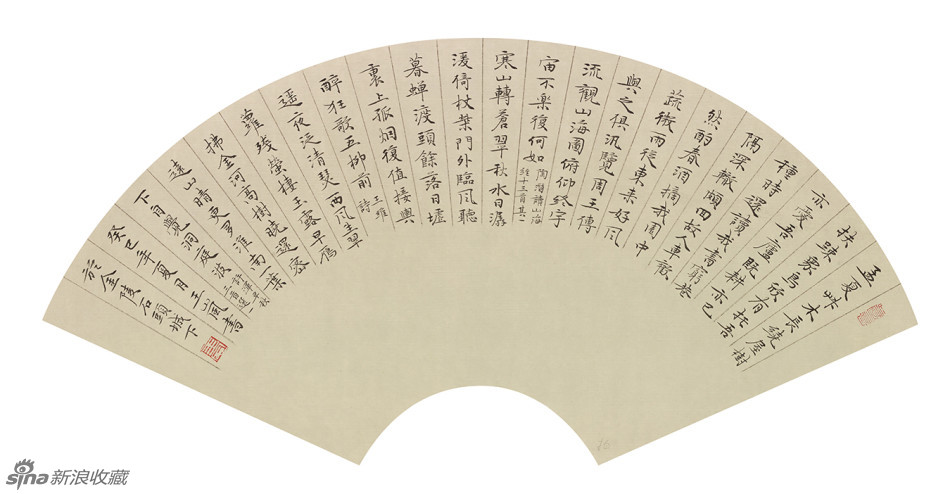 孟夏艸木長繞屋樹
扶踈衆鳥欣有托吾
亦愛吾廬既耕亦已
種時還讀我書窮巷
隔深轍頗回故人車歡
然酌春酒摘我園中
蔬微雨從東來好風
與之俱汎覽周王傳
流觀山海圖俯仰終宇
宙不樂復何如
陶淵明讀山海
經十三首其一
寒山轉蒼翠秋水日潺
湲倚杖柴門外臨風聽
暮蟬渡頭餘落日墟
裏上孤烟復值接輿
醉狂歌五柳前
王維
詩
遥夜泛清瑟西風生翠
蘿殘螢棲玉露早鴈
拂金河高樹曉還密
遠山晴更多淮南一葉
下自覺洞庭波
許渾早秋
三首選一
癸巳年夏月王嵐書
於金陵石頭城下
sina新浪收藏